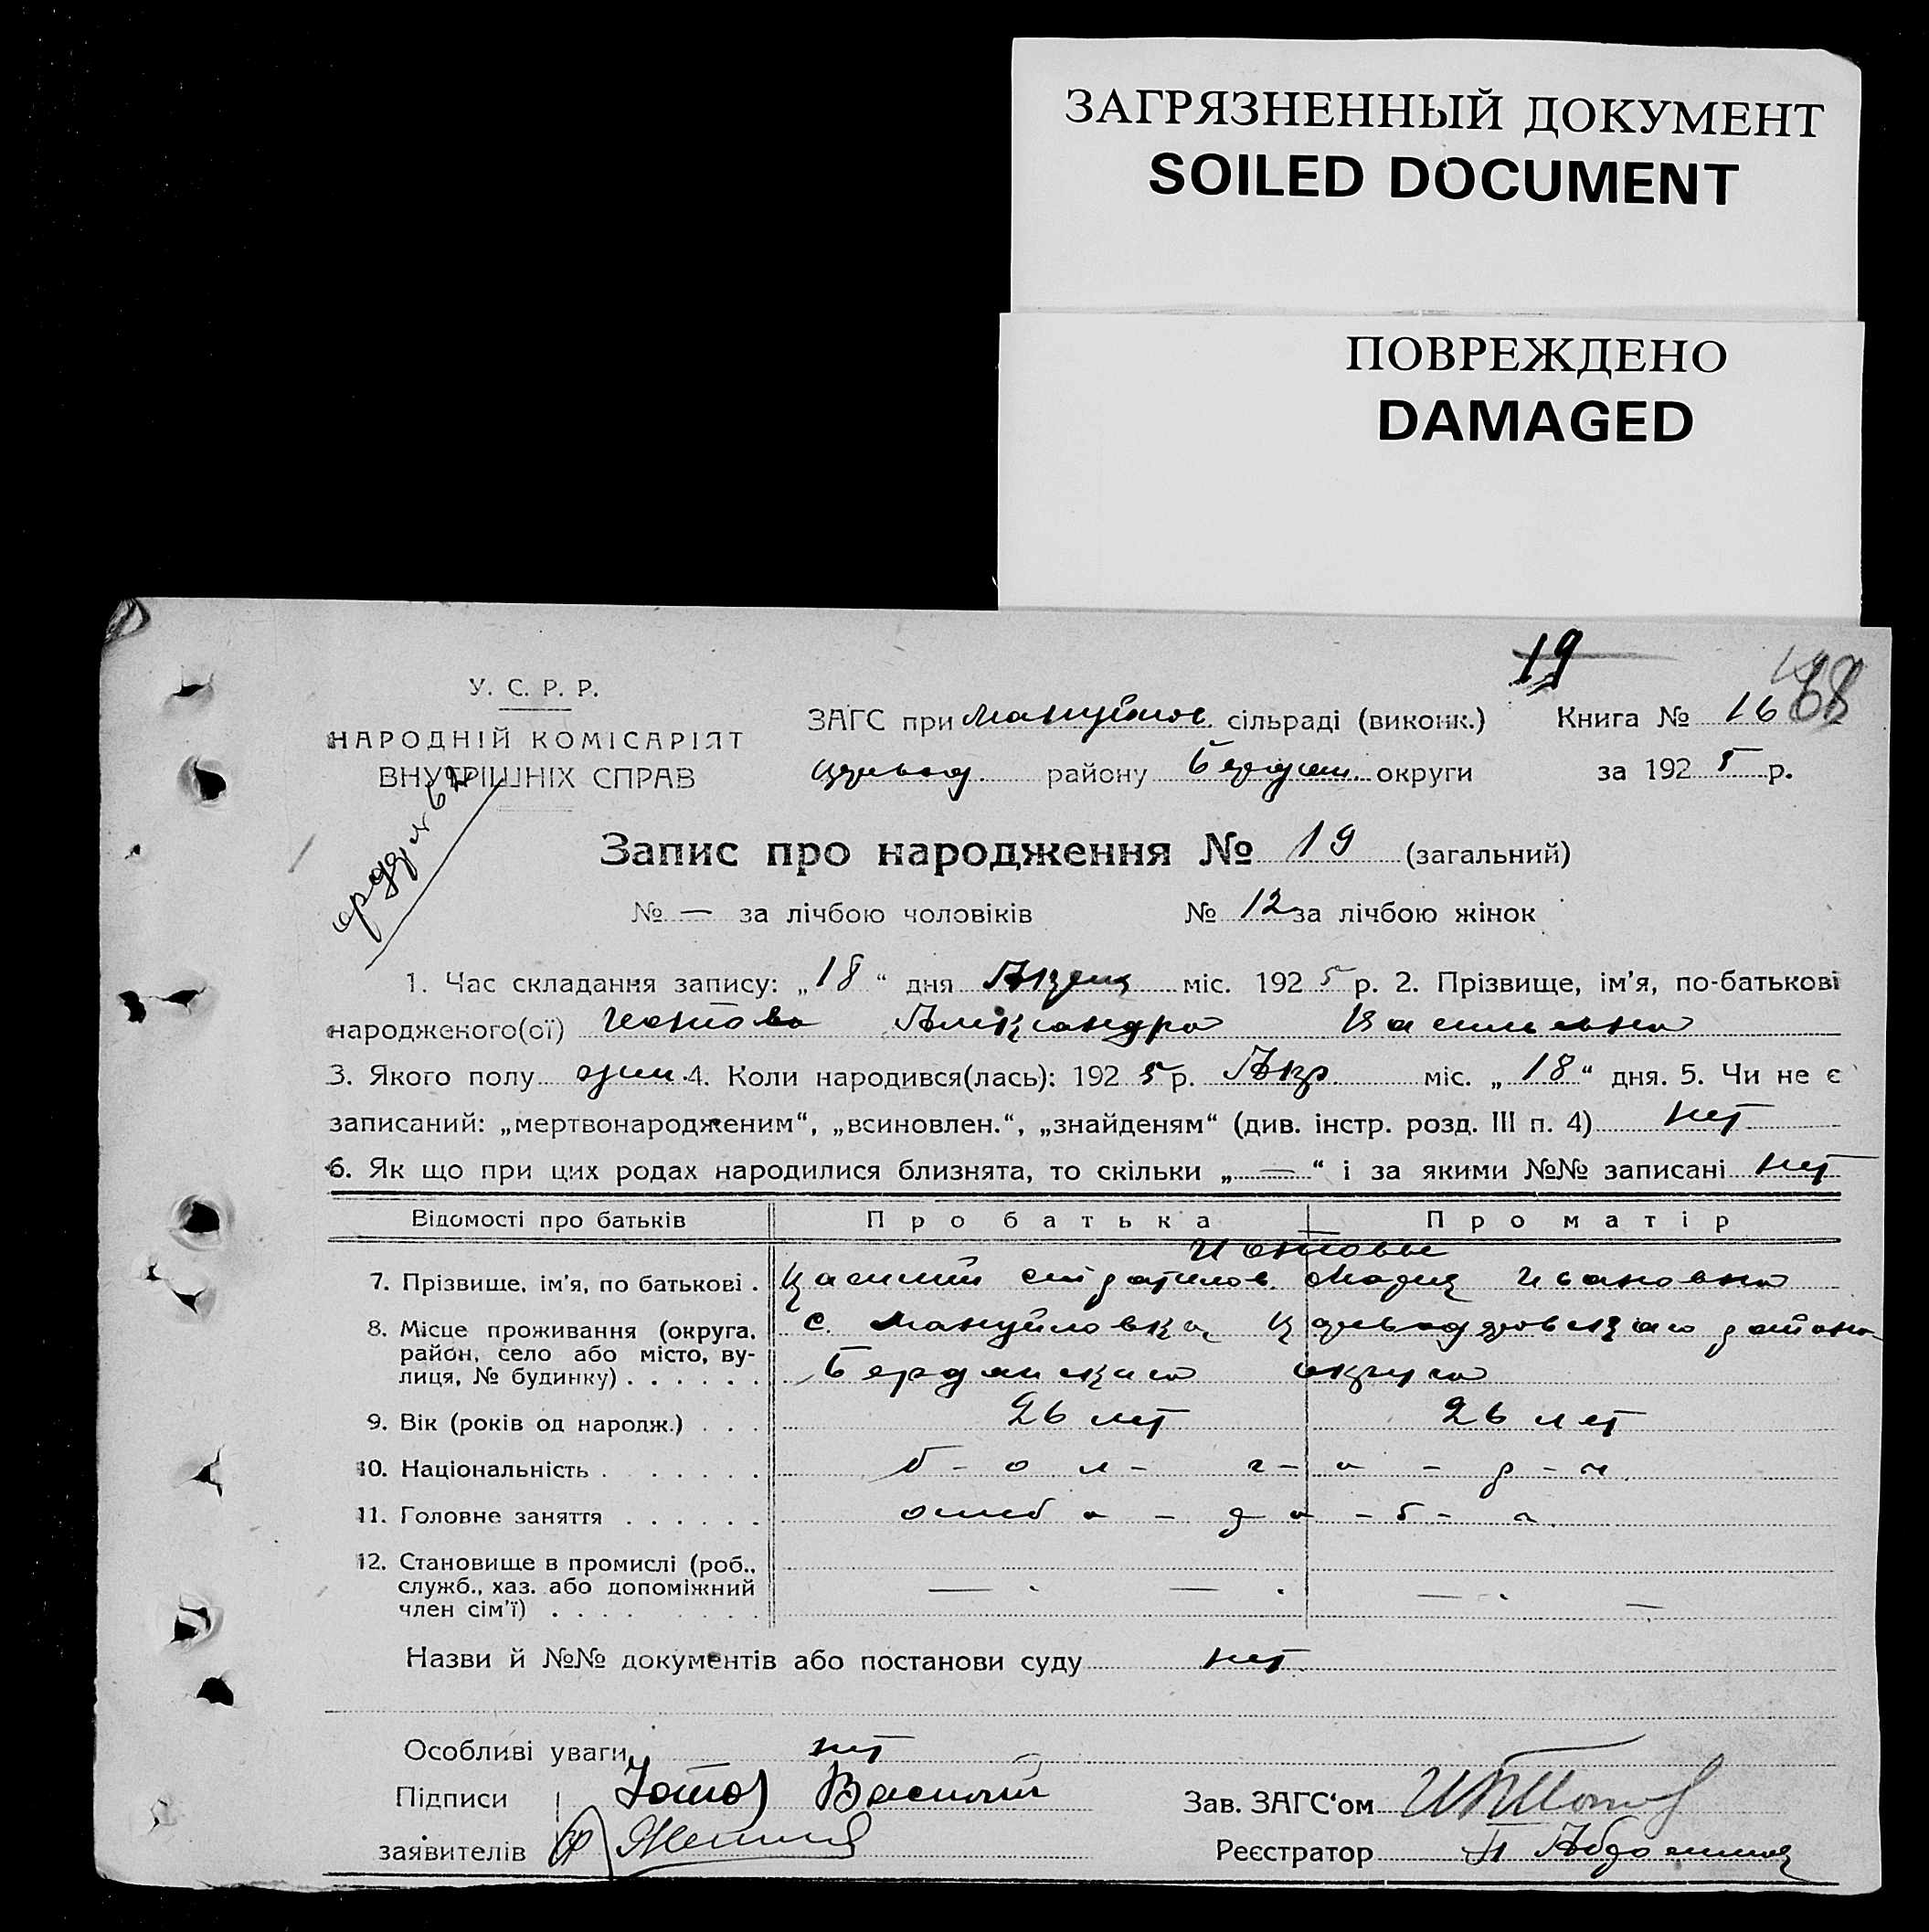 ЗАГРЯЗНЕННЫЙ ДОКУМЕНТ
SOILED DOCUMENT
ПОВРЕЖДЕНО
DAMAGED
19
У. С. Р. Р.
НАРОДНІЙ КОМІСАРІЯТ
ВНУТРІШНІХ СПРАВ
ЗАГС при Мануйлов. сільраді (виконк.) Книга № 16
району Бердян. округи за 1925 р.
Запис про народження № 19 (загальний)
№ — за лічбою чоловіків № 12 за лічбою жінок
1. Час складання запису: „18“ дня Апреля міс. 1925 р. 2. Прізвище, ім'я, по-батькові
народженого(ої) Александра Васильевна
3. Якого полу 4. Коли народився(лась): 1925 р. Апр. міс. „18“ дня. 5. Чи не є
записаний: „мертвонародженим“, „всиновлен.“, „знайденям“ (див. інстр. розд. III п. 4) нет
6. Як що при цих родах народилися близнята, то скільки „—“ і за якими №№ записані нет
Відомості про батьків Про батька Про матір
7. Прізвище, ім'я, по батькові . Василий Мария Ивановна
8. Місце проживання (округа, с. Мануйловка района
район, село або місто, ву-
лиця, № будинку) . . . . . . Бердянскаго округа
9. Вік (років од народж.) . . . 26 лет 26 лет
10. Національність . . . . . . . б - о л - г - а - р - и
11. Головне заняття . . . . . . хлеб о - д - а - б - а
12. Становище в промислі (роб.,
служб., хаз. або допоміжний — — — —
член сім'ї) . . . . . . . . .
Назви й №№ документів або постанови суду нет
Особливі уваги нет
Підписи Василий Зав. ЗАГС'ом
заявителів Реєстратор